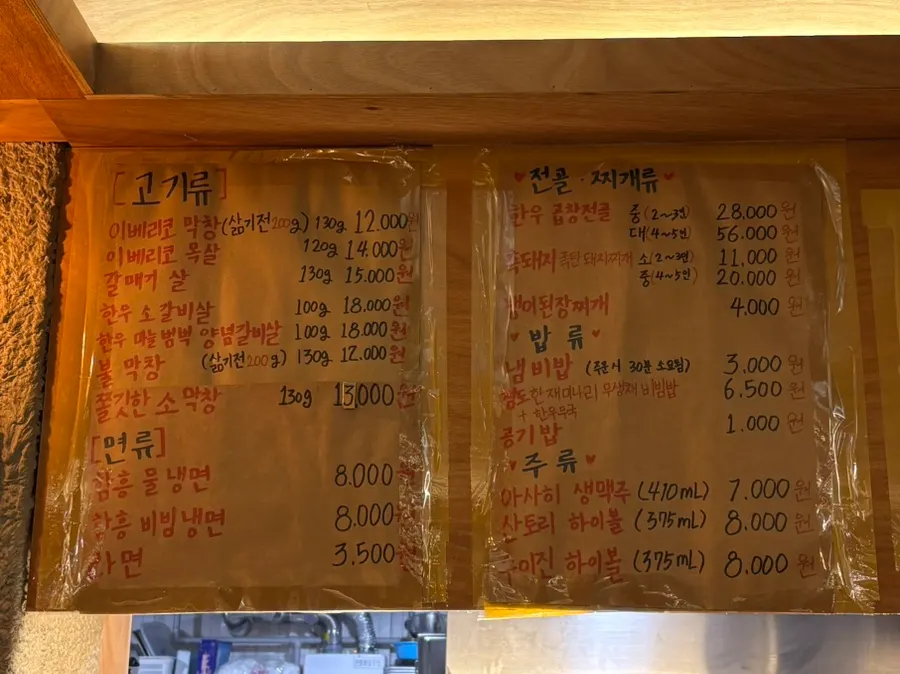 [고기류]
이베리코 막창(삶기전200g) 130g 12.000원
이베리코 목살 120g 14.000원
갈매기 살 130g 15.000원
한우 소갈비살 100g 18.000원
한우 마늘 범벅 양념갈비살 100g 18.000원
불 막창 (삶기전200g) 130g 12.000원
쫄깃한 소막창 130g 13,000원
[면류]
함흥 물냉면 8.000원
함흥 비빔냉면 8.000원
라면 3.500원
♥ 전골·찌개류 ♥
한우 곱창전골 중(2~3인) 28.000원
대(4~5인) 56.000원
돼지찌개 소(2~3인) 11,000원
중(4~5인) 20.000원
냉이된장찌개 4.000원
♥ 밥류 ♥
냄비밥 (주문시 30분 소요됨) 3.000원
청도한재미나리 무생채 비빔밥 6.500원
+ 한우무국
공기밥 1.000원
♥ 주류 ♥
아사히 생맥주 (410mL) 7.000원
산토리 하이볼 (375mL) 8.000원
하이볼 (375mL) 8.000원